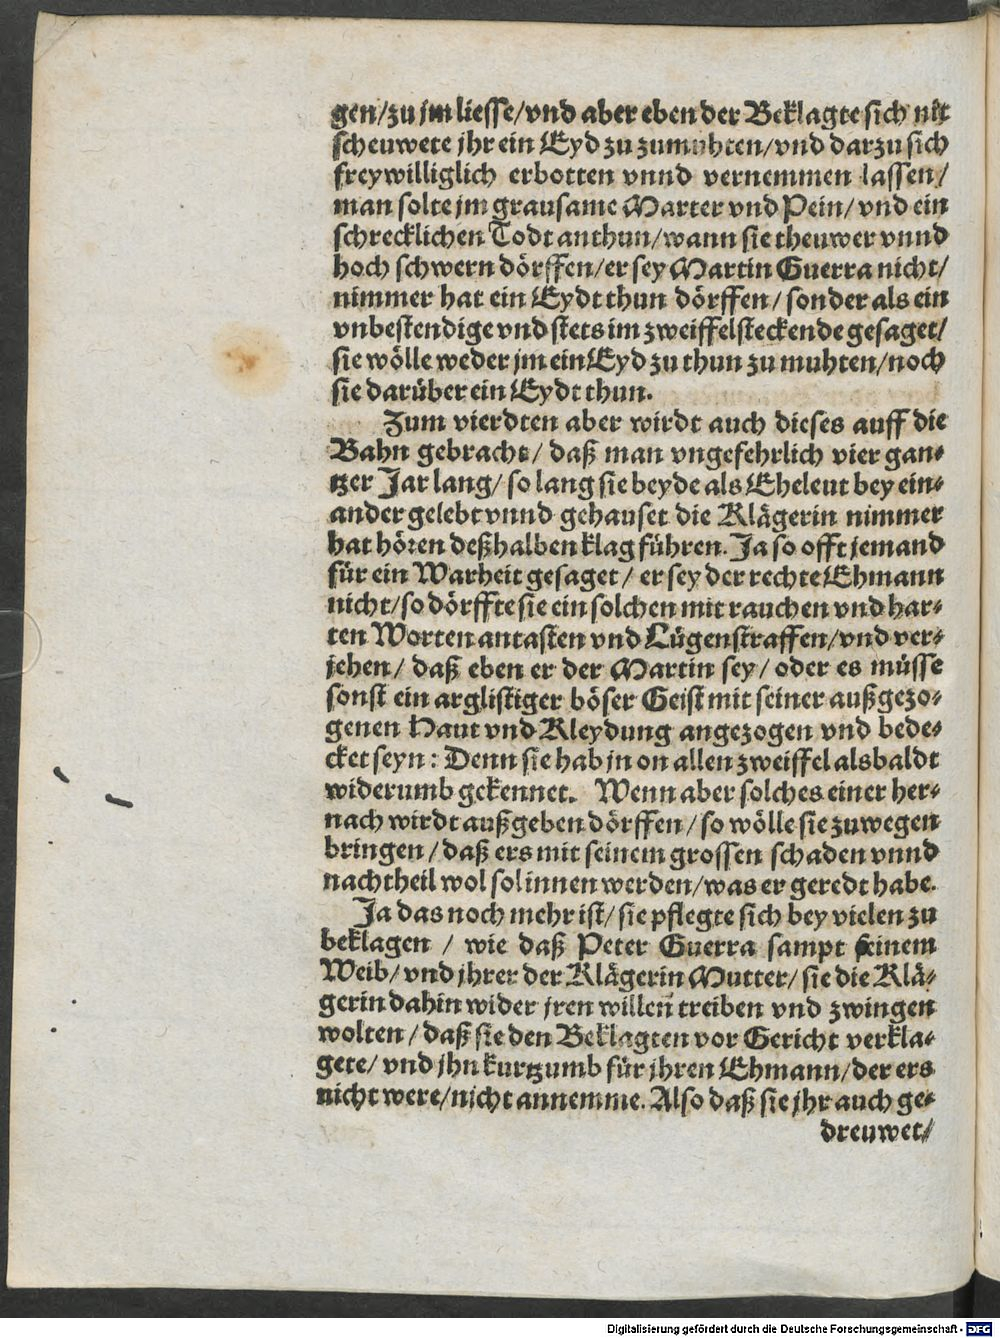 gen/zu jm liesse/vnd aber eben der Beklagte sich nit
scheuwete jhr ein Eyd zu zumuhten/vnd darzu sich
freywilliglich erbotten vnnd vernemmen lassen/
man solte jm grausame Marter vnd Pein/vnd ein
schrecklichen Todt anthun/wann sie theuwer vnnd
hoch schwern dörffen/er sey Martin Guerra nicht/
nimmer hat ein Eydt thun dörffen/sonder als ein
vnbestendige vnd stets im zweiffel steckende gesaget/
sie wölle weder jm ein Eyd zu thun zu muhten/noch
sie darüber ein Eydt thun.
Zum vierdten aber wirdt auch dieses auff die
Bahn gebracht/ daß man vngefehrlich vier gan⸗
tzer Jar lang/ so lang sie beyde als Eheleut bey ein⸗
ander gelebt vnnd gehauset die Klägerin nimmer
hat hören deßhalben klag führen. Ja so offt jemand
für ein Warheit gesaget/ er sey der rechte Ehmann
nicht/so dörffte sie ein solchen mit rauchen vnd har⸗
ten Worten antasten vnd Lügenstraffen/vnd ver⸗
jehen/ daß eben er der Martin sey/ oder es müsse
sonst ein arglistiger böser Geist mit seiner außgezo⸗
genen Haut vnd Kleydung angezogen vnd bede⸗
cket seyn: Denn sie hab jn on allen zweiffel alsbaldt
widerumb gekennet. Wenn aber solches einer her⸗
nach wirdt außgeben dörffen/so wölle sie zuwegen
bringen/daß ers mit seinem grossen schaden vnnd
nachtheil wol sol innen werden/was er geredt habe.
Ja das noch mehr ist/ sie pflegte sich bey vielen zu
beklagen / wie daß Peter Guerra sampt seinem
Weib/ vnd jhrer der Klägerin Mutter/ sie die Klä⸗
gerin dahin wider jren willen treiben vnd zwingen
wolten/daß sie den Beklagten vor Gericht verkla⸗
gete/ vnd jhn kurtzumb für jhren Ehmann/der ers
nicht were/nicht annemme. Also daß sie jhr auch ge⸗
dreuwet/
Digitalisierung gefördert durch die Deutsche Forschungsgemeinschaft - DFG